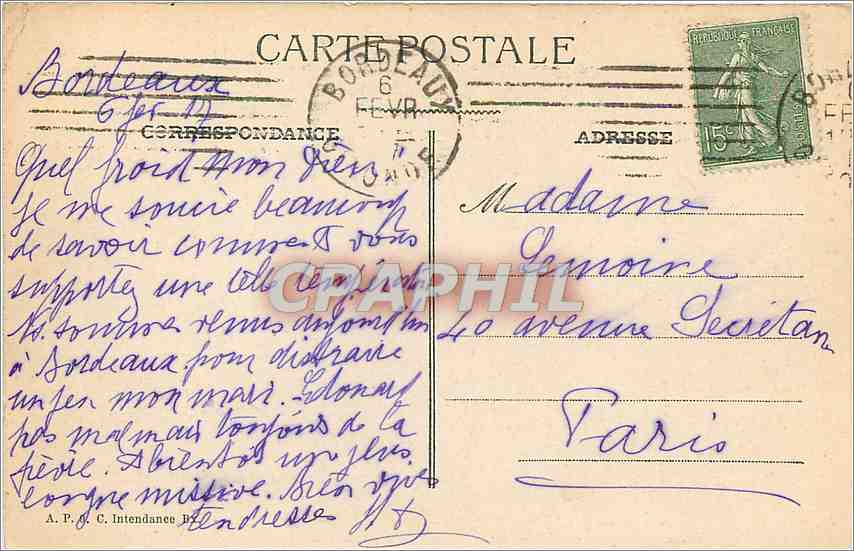 CARTE POSTALE
RÉPUBLIQUE FRANÇAISE
15c
BORDEAUX
6
FEVR
CORRESPONDANCE
ADRESSE
Bordeaux
6 fev 17
Quel froid mon Dieu !!
Je me soucie beaucoup
de savoir comment vous
supportez une telle température
Ns. sommes venus aujourd'hui
à Bordeaux pour distraire
un peu mon mari. Edouard
pas mal mais toujours de la
fièvre. A bientôt un plus
longue missive. Bien vives
tendresses
Madame
Lemoine
40 avenue Secrétan
Paris
CPAPHIL
A. P. C. Intendance Bx